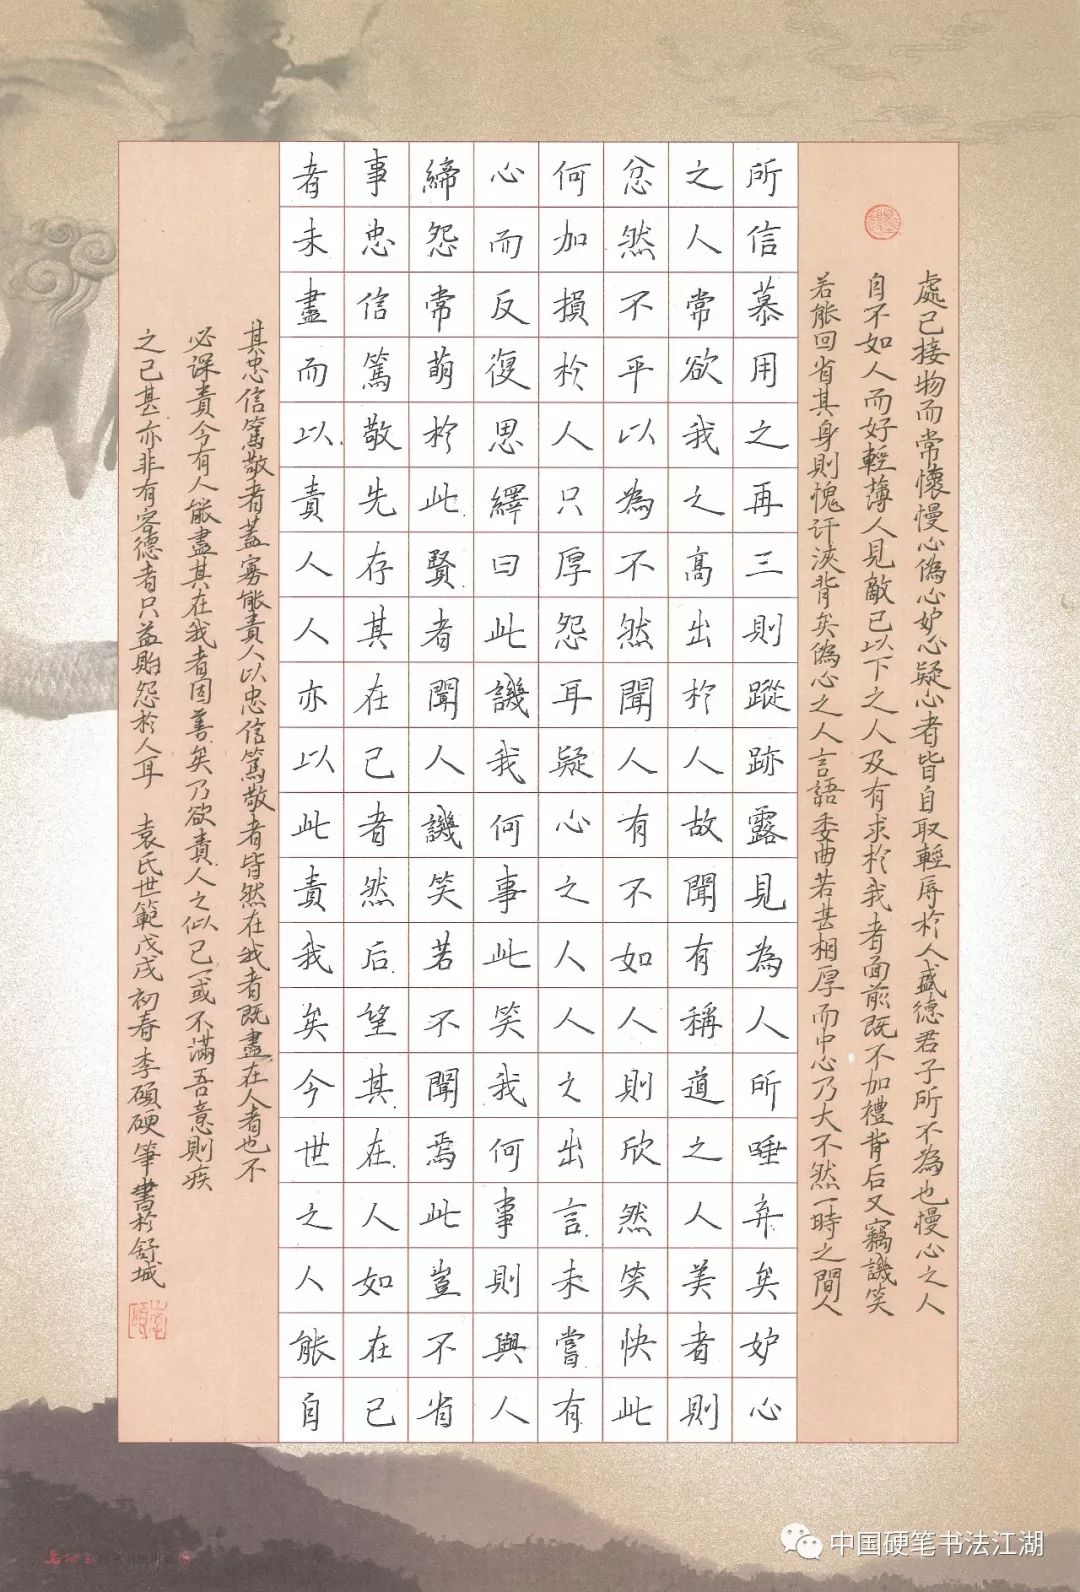 處己接物而常懷慢心偽心妒心疑心者皆自取輕辱於人盛德君子所不為也慢心之人
自不如人而好輕薄人見敵己以下之人及有求於我者面前既不加禮背后又竊譏笑
若能回省其身則愧汗浹背矣偽心之人言語委曲若甚相厚而中心乃大不然一時之間人
所信慕用之再三則蹤跡露見為人所唾弃矣妒心
之人常欲我之高出於人故聞有稱道之人美者則
忿然不平以為不然聞人有不如人則欣然笑快此
何加損於人只厚怨耳疑心之人人之出言未嘗有
心而反復思繹曰此譏我何事此笑我何事則與人
締怨常萌於此賢者聞人譏笑若不聞焉此豈不省
事忠信篤敬先存其在己者然后望其在人如在己
者未盡而以責人人亦以此責我矣今世之人能自
其忠信篤敬者蓋寡能責人以忠信篤敬者皆然在我者既盡在人者也不
必深責今有人能盡其在我者固善矣乃欲責人之似己一或不滿吾意則疾
之已甚亦非有容德者只益貽怨於人耳 袁氏世範戊戌初春李碩硬筆書於舒城
中国硬笔书法江湖